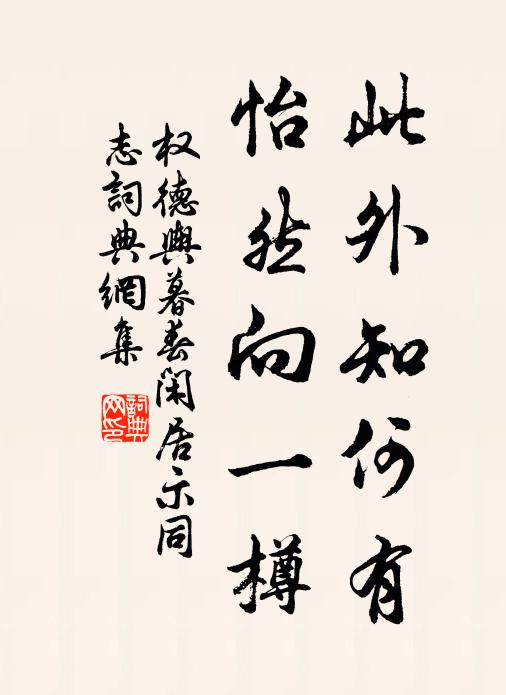 此外知何有
怡然向一樽
权德舆暮春闲居示同
志詞典網集
詞典
网印